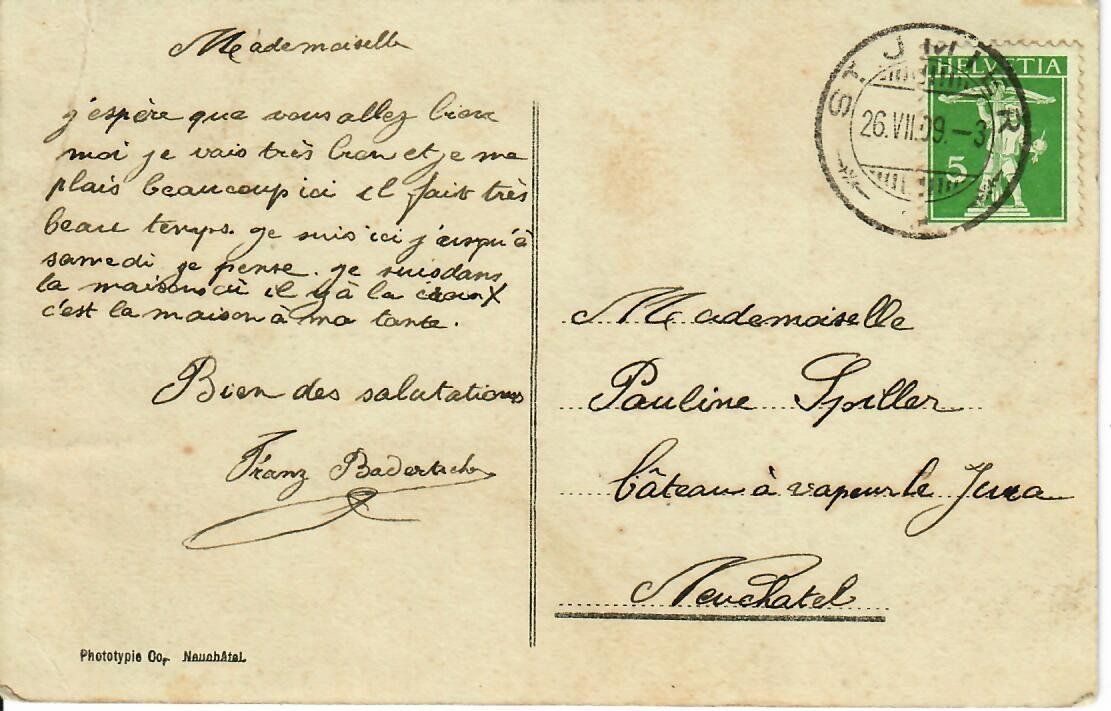 Mademoiselle
j'espère que vous allez bien
moi je vais très bien et je me
plais beaucoup ici il fait très
beau temps. je suis ici j'usqu'à
samedi je pense. je suis dans
la maison où il y à la croix X
c'est la maison à ma tante.
Bien des salutations
Franz Badertscher
Phototypie Co. Neuchâtel
ST. JMIER
26.VII.09.-3
HELVETIA
5
Mademoiselle
Pauline Spiller
Bâteau à vapeur le Jura
Neuchatel